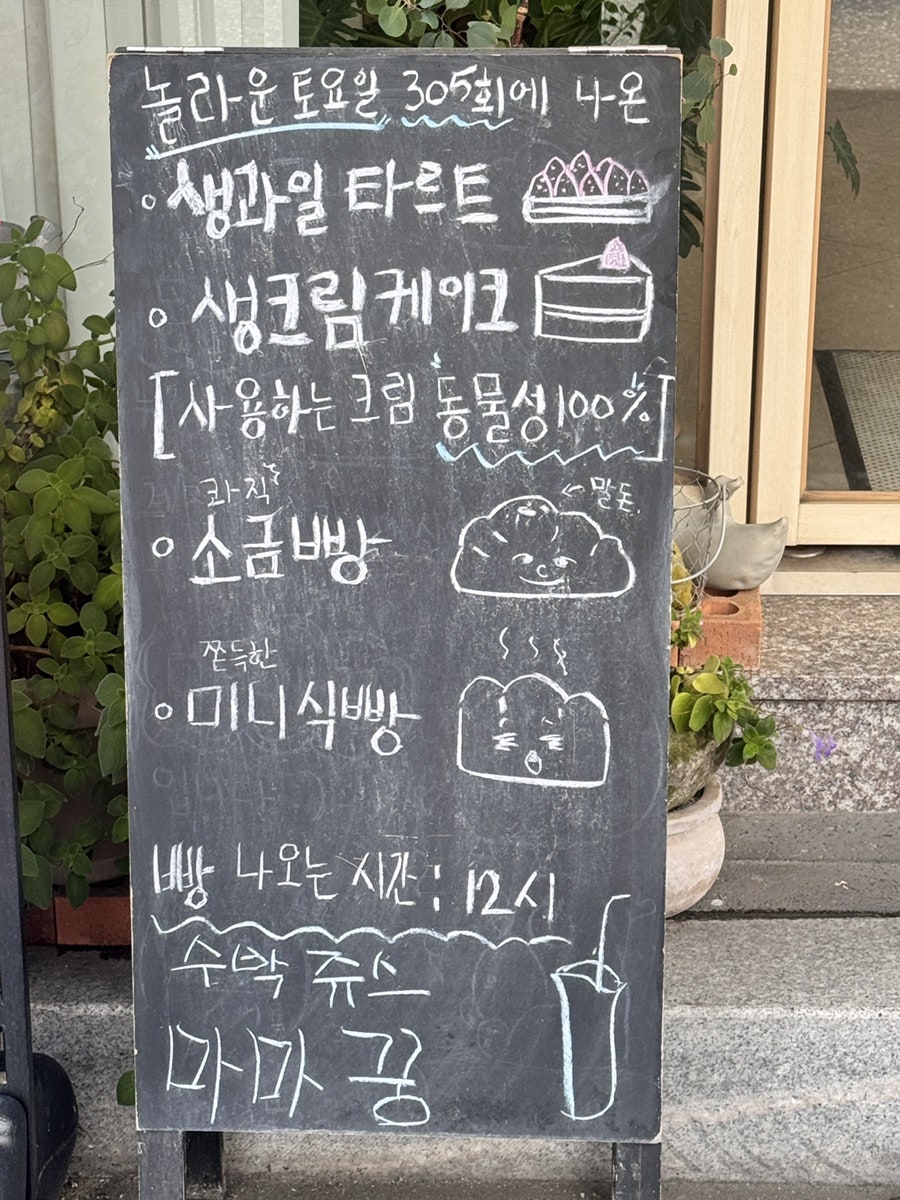 놀라운 토요일 305회에 나온
생과일 타르트
생크림 케이크
[사용하는 크림 동물성 100%]
콰직
← 말돈.
소금빵
쫀득한
미니 식빵
빵 나오는 시간 : 12시
수박 쥬스
마마 꿍